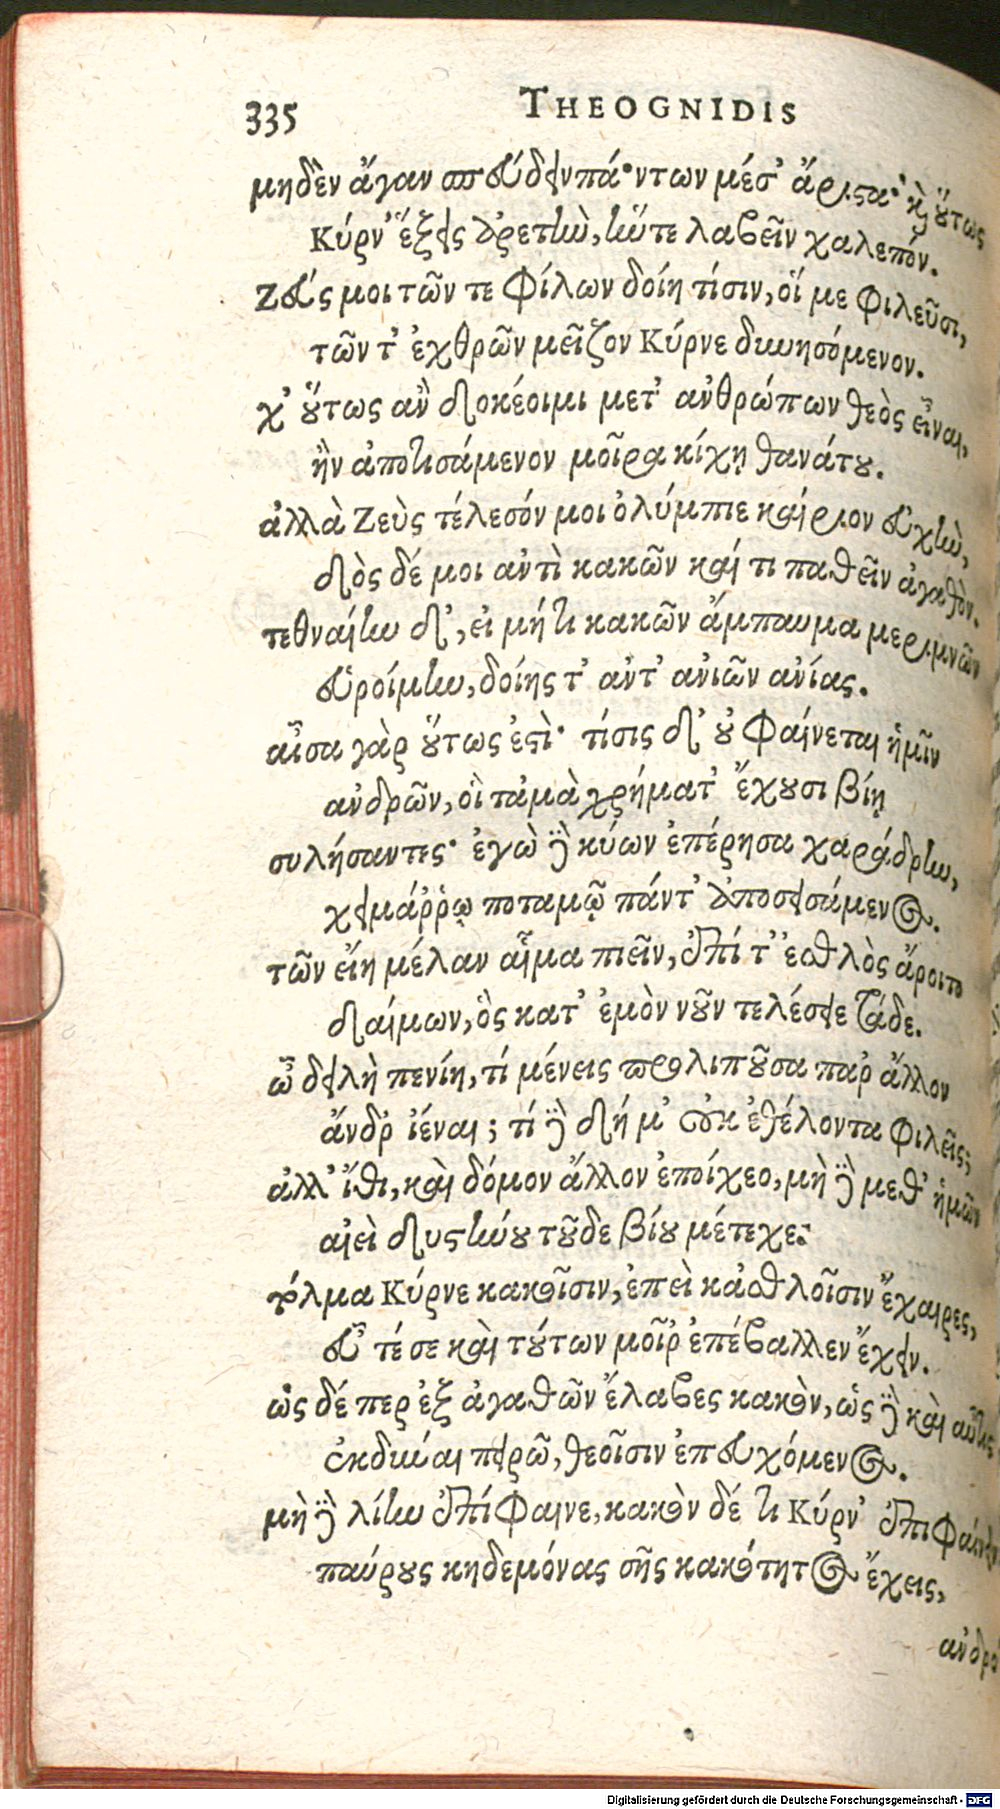 335 THEOGNIDIS
μηδὲν ἄγαν σπεύδειν πάντων μέσ' ἄριστα· καὶ οὕτως
Κύρν' ἕξεις ἀρετὴν, ἥντε λαβεῖν χαλεπόν.
Ζεύς μοι τῶν τε φίλων δοίη τίσιν, οἵ με φιλεῦσι,
τῶν τ' ἐχθρῶν μεῖζον Κύρνε δυνησόμενον.
χ' οὕτως ἂν δοκέοιμι μετ' ἀνθρώπων θεὸς εἶναι,
ἢν ἀποτισάμενον μοῖρα κίχῃ θανάτου.
ἀλλὰ Ζεὺς τέλεσόν μοι ὀλύμπιε καίριον εὐχὴν,
δὸς δέ μοι ἀντὶ κακῶν καί τι παθεῖν ἀγαθὸν.
τεθναίην δ', εἰ μή τι κακῶν ἄμπαυμα μεριμνῶν
εὑροίμην, δοίης τ' ἀντ' ἀνιῶν ἀνίας.
αἶσα γὰρ οὕτως ἐστὶ· τίσις δ' οὐ φαίνεται ἡμῖν
ἀνδρῶν, οἳ τἀμὰ χρήματ' ἔχουσι βίῃ
συλήσαντες· ἐγὼ δὲ κύων ἐπέρησα χαράδρην,
χειμάῤῥῳ ποταμῷ πάντ' ἀποσεισάμενος.
τῶν εἴη μέλαν αἷμα πιεῖν, ἐπί τ' ἐσθλὸς ἄροιτο
δαίμων, ὃς κατ' ἐμὸν νοῦν τελέσειε τάδε.
ὦ δειλὴ πενίη, τί μένεις προλιποῦσα παρ' ἄλλον
ἄνδρ' ἰέναι; τί δὲ δή μ' οὐκ ἐθέλοντα φιλεῖς;
ἀλλ' ἴθι, καὶ δόμον ἄλλον ἐποίχεο, μὴ δὲ μεθ' ἡμῶν
αἰεὶ δυστήνου τοῦδε βίου μέτεχε.
τόλμα Κύρνε κακοῖσιν, ἐπεὶ κἀσθλοῖσιν ἔχαιρες,
εὖ τέ σε καὶ τούτων μοῖρ' ἐπέβαλλεν ἔχειν.
ὡς δέ περ ἐξ ἀγαθῶν ἔλαβες κακὸν, ὡς δὲ καὶ αὖτις
ἐκδῦναι πειρῶ, θεοῖσιν ἐπευχόμενος.
μὴ δὲ λίην ἐπίφαινε, κακὸν δέ τι Κύρν' ἐπιφαίνειν
παύρους κηδεμόνας σῆς κακότητος ἔχεις,
ἀνθρω
Digitalisierung gefördert durch die Deutsche Forschungsgemeinschaft - DFG